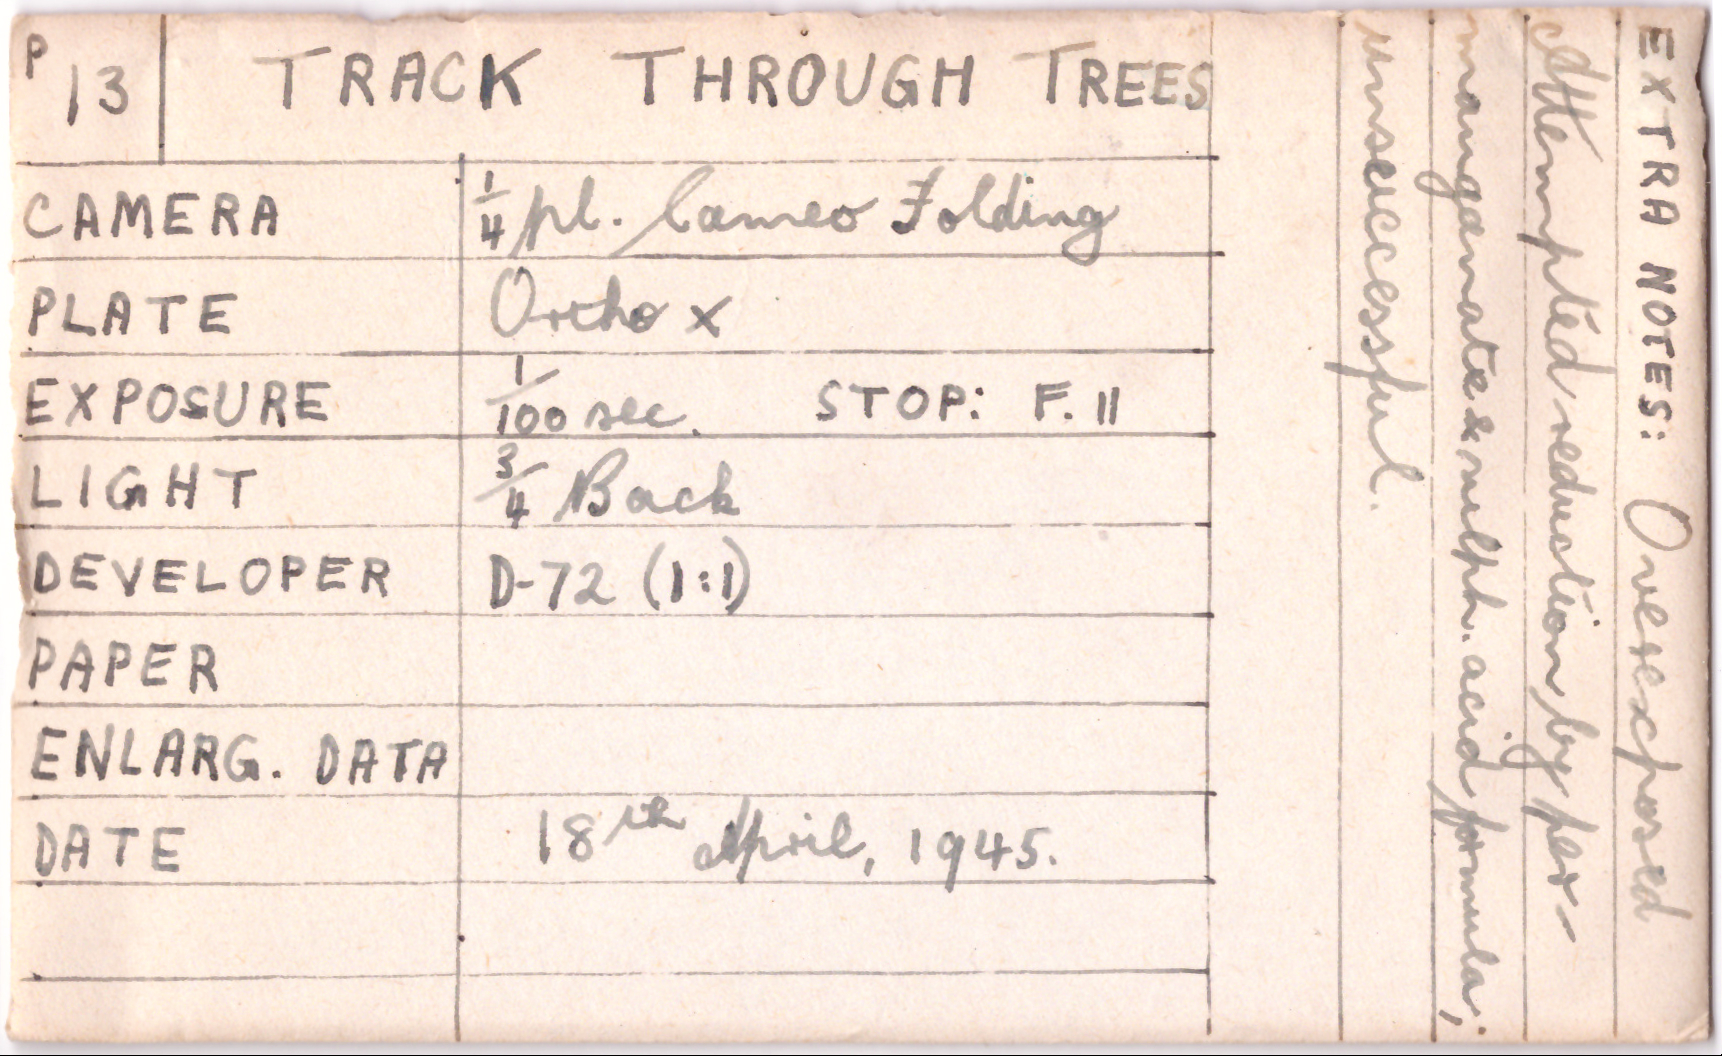 P 13 TRACK THROUGH TREES
CAMERA ¼ pl. Cameo Folding
PLATE Ortho X
EXPOSURE 1/100 sec. STOP: F. 11
LIGHT ¾ Back
DEVELOPER D-72 (1:1)
PAPER
ENLARG. DATA
DATE 18th April, 1945.
EXTRA NOTES: Overexposed
Attempted reduction by per-
manganate & sulph. acid formula;
unsuccessful.